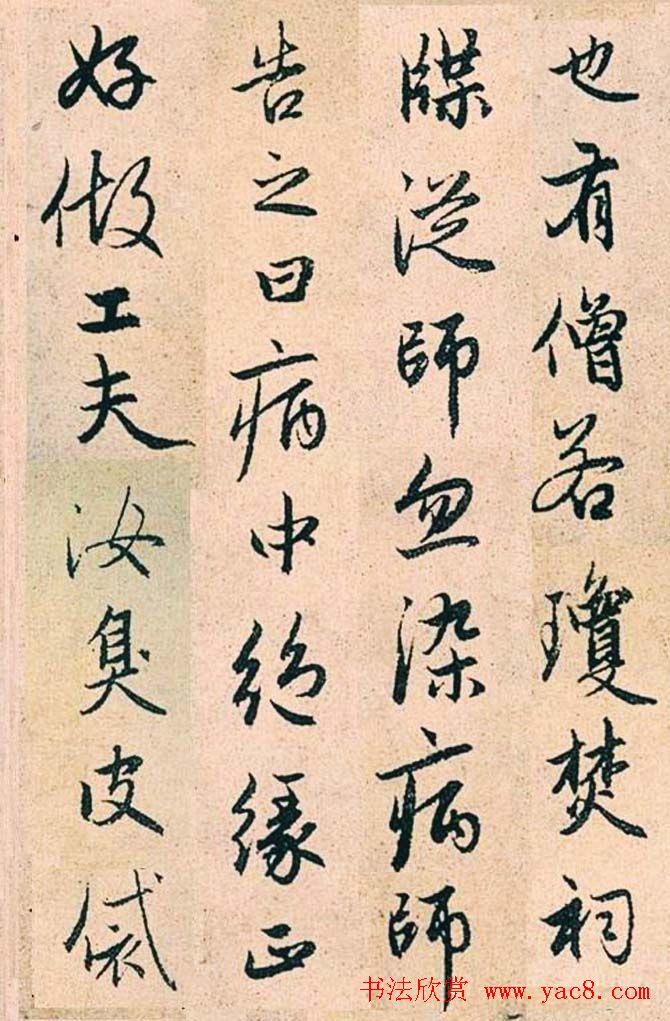 也有僧若瓊焚祠
牒從師忽染病師
告之曰病中絕緣正
好做工夫汝臭皮袋
书法欣赏 www.yac8.com